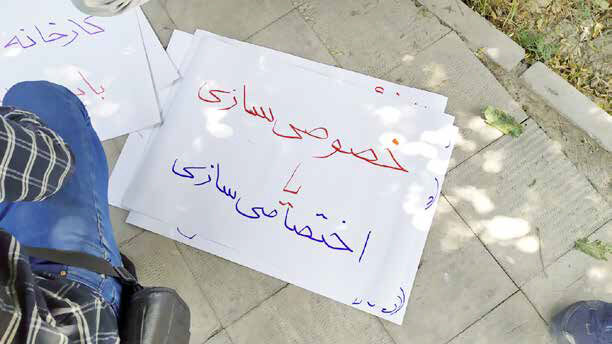 کارخانه
خصوصی‌سازی
یا
اختصاصی‌سازی